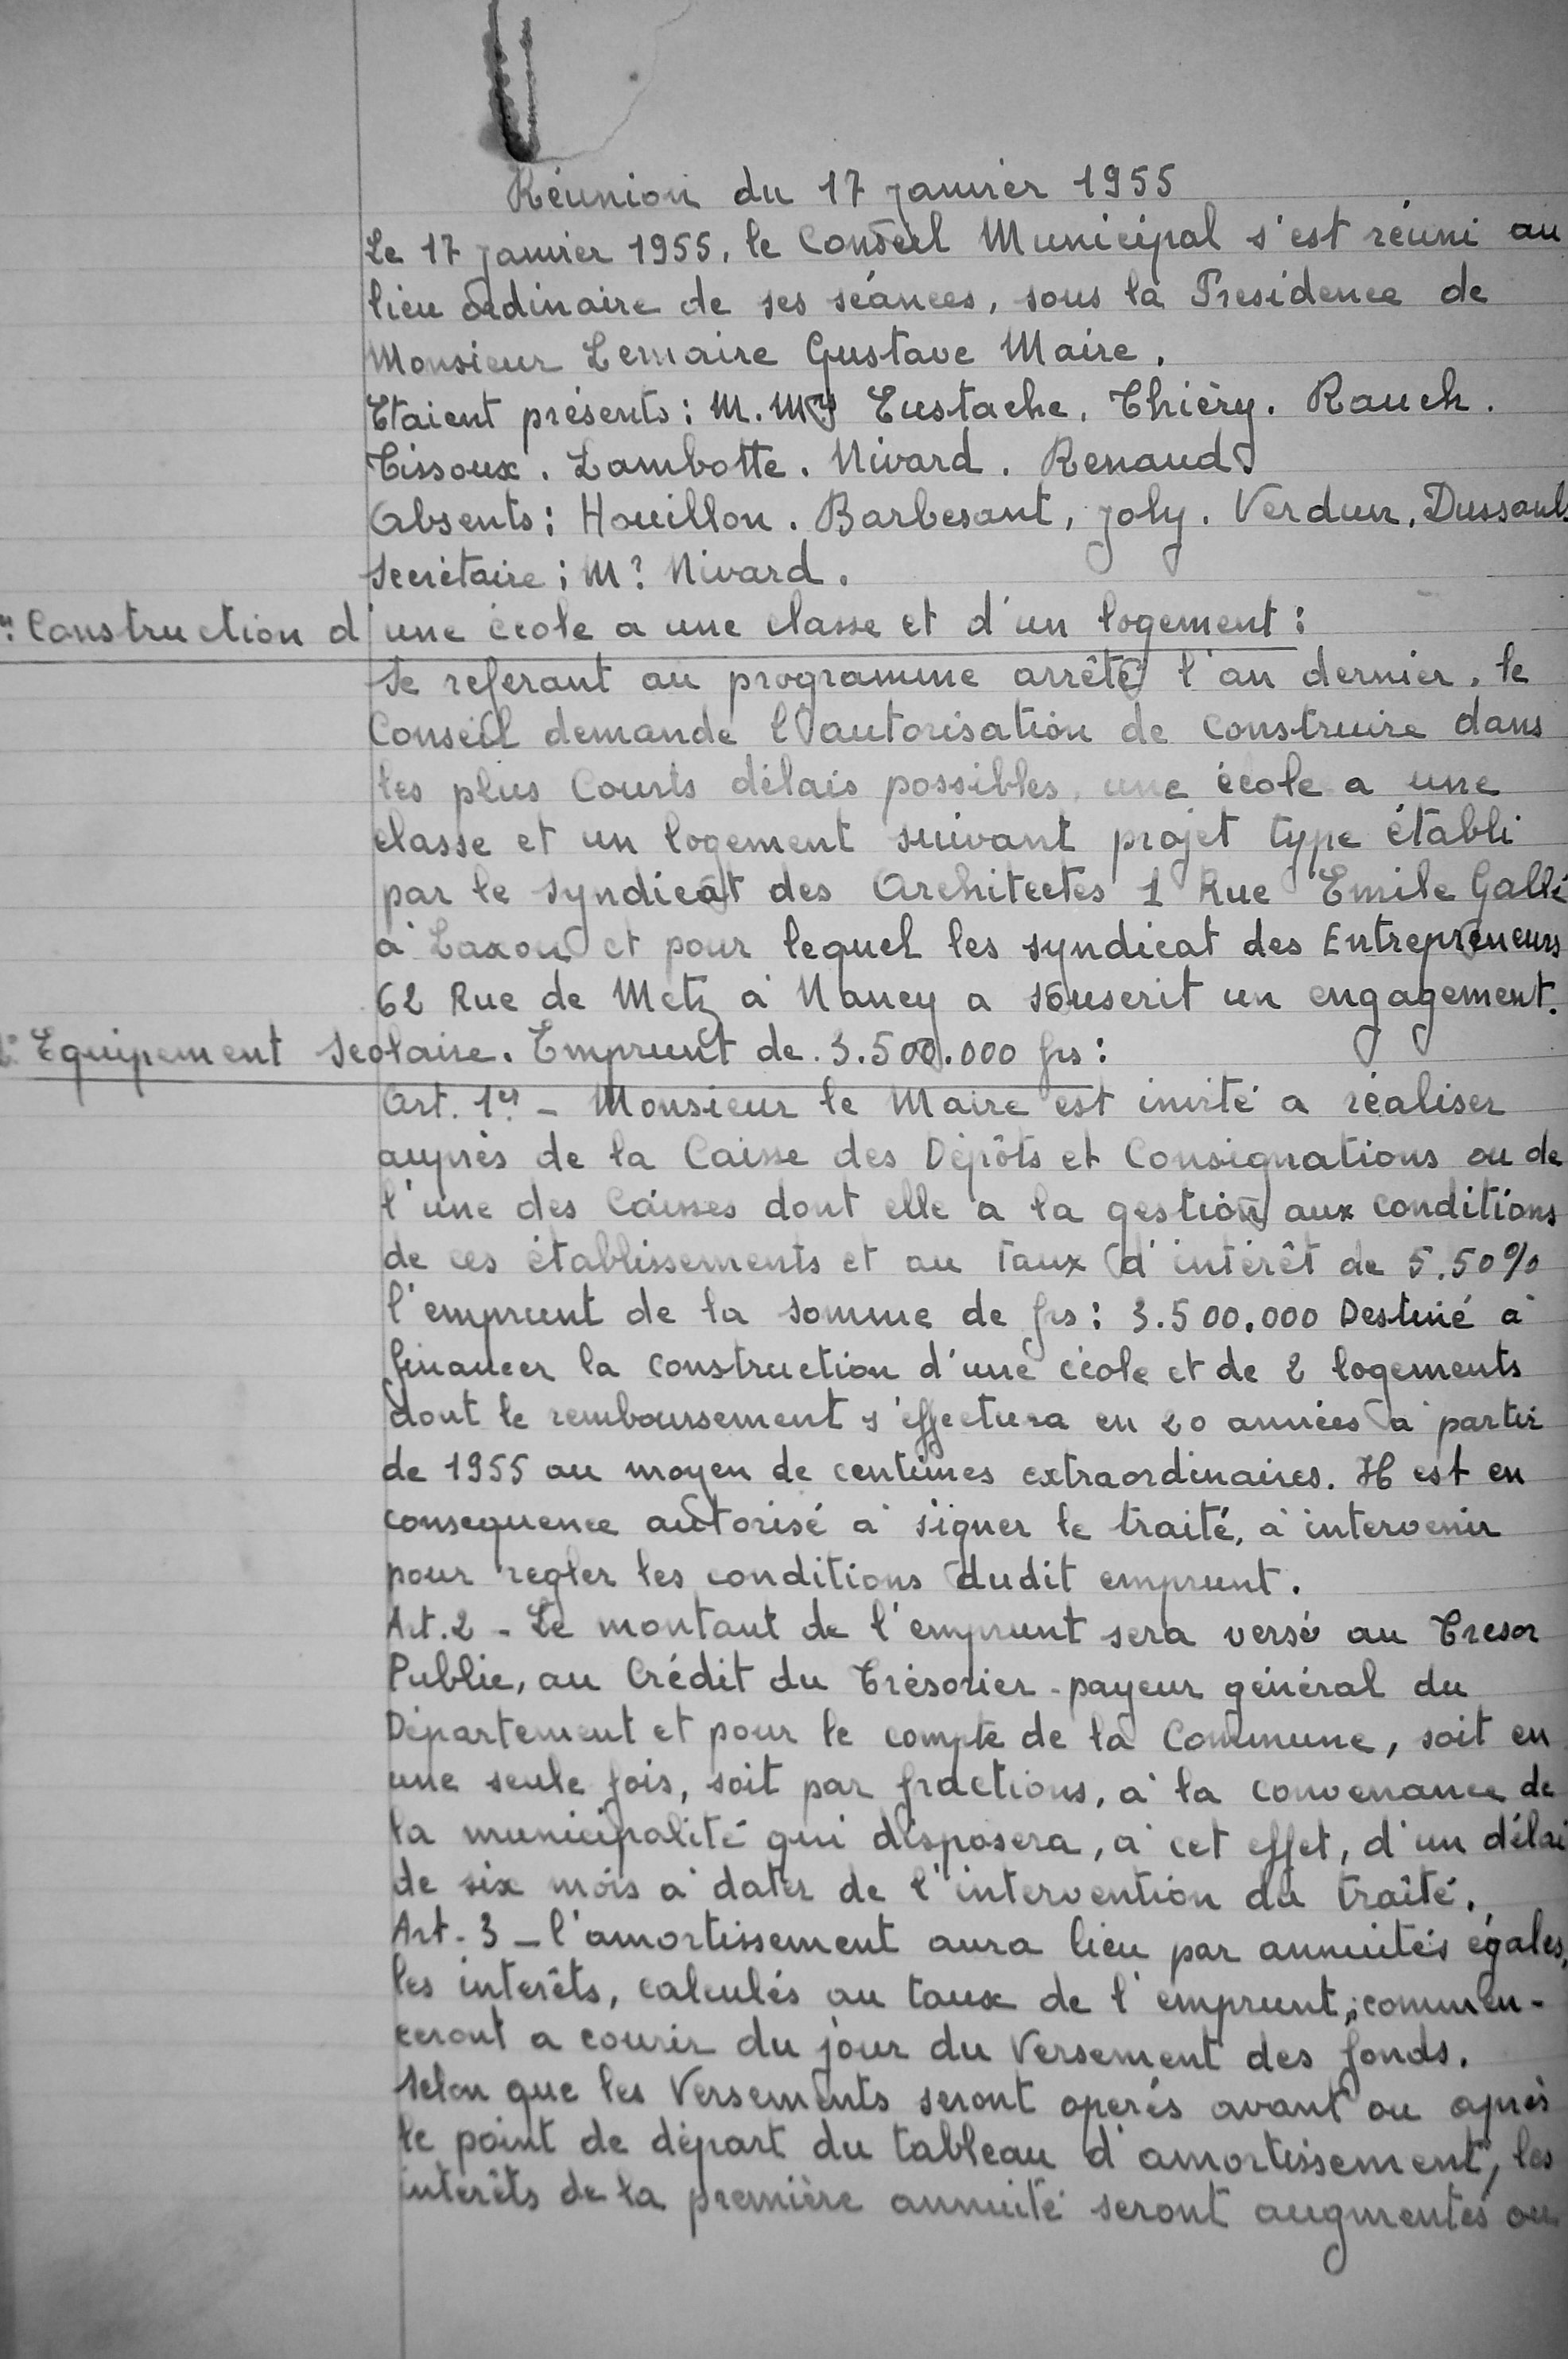 Réunion du 17 janvier 1955
Le 17 janvier 1955, le Conseil Municipal s'est réuni au
lieu ordinaire de ses séances, sous la Présidence de
Monsieur Lemaire Gustave Maire.
Etaient présents : M. Mrs Eustache. Thiéry. Rauch.
Tissoux. Lambotte. Nivard. Renaud
Absents : Houillon. Barbesant, Joly. Verdun,
Secrétaire : Mr Nivard.
Construction d'une école a une classe et d'un logement :
Se referant au programme arrêté l'an dernier, le
Conseil demande l'autorisation de construire dans
les plus Courts délais possibles, une école a une
classe et un logement suivant projet type établi
par le Syndicat des Architectes 1 Rue Emile Gallé
à Laxou et pour lequel les syndicat des Entrepreneurs
62 Rue de Metz à Nancy a souscrit un engagement.
Equipement Scolaire. Emprunt de 3.500.000 frs :
Art. 1er - Monsieur le Maire est invité a réaliser
auprès de la Caisse des Dépôts et Consignations ou de
l'une des Caisses dont elle a la gestion aux conditions
de ces établissements et au taux d'intérêt de 5.50%
l'emprunt de la somme de frs : 3.500.000 Destiné à
financer la construction d'une école et de 2 logements
dont le remboursement s'effectuera en 20 années à partir
de 1955 au moyen de centimes extraordinaires. Il est en
consequence autorisé à signer le traité, à intervenir
pour regler les conditions dudit emprunt.
Art. 2 - Le montant de l'emprunt sera versé au Tresor
Public, au Crédit du Trésorier-payeur général du
Département et pour le compte de la Commune, soit en
une seule fois, soit par fractions, à la convenance de
la municipalité qui disposera, à cet effet, d'un délai
de six mois à dater de l'intervention du traité.
Art. 3 - l'amortissement aura lieu par annuités égales,
les interêts, calculés au taux de l'emprunt, commen-
ceront a courir du jour du Versement des fonds.
Selon que les Versements seront operés avant ou après
le point de départ du tableau d'amortissement, les
interêts de la première annuité seront augmentés ou